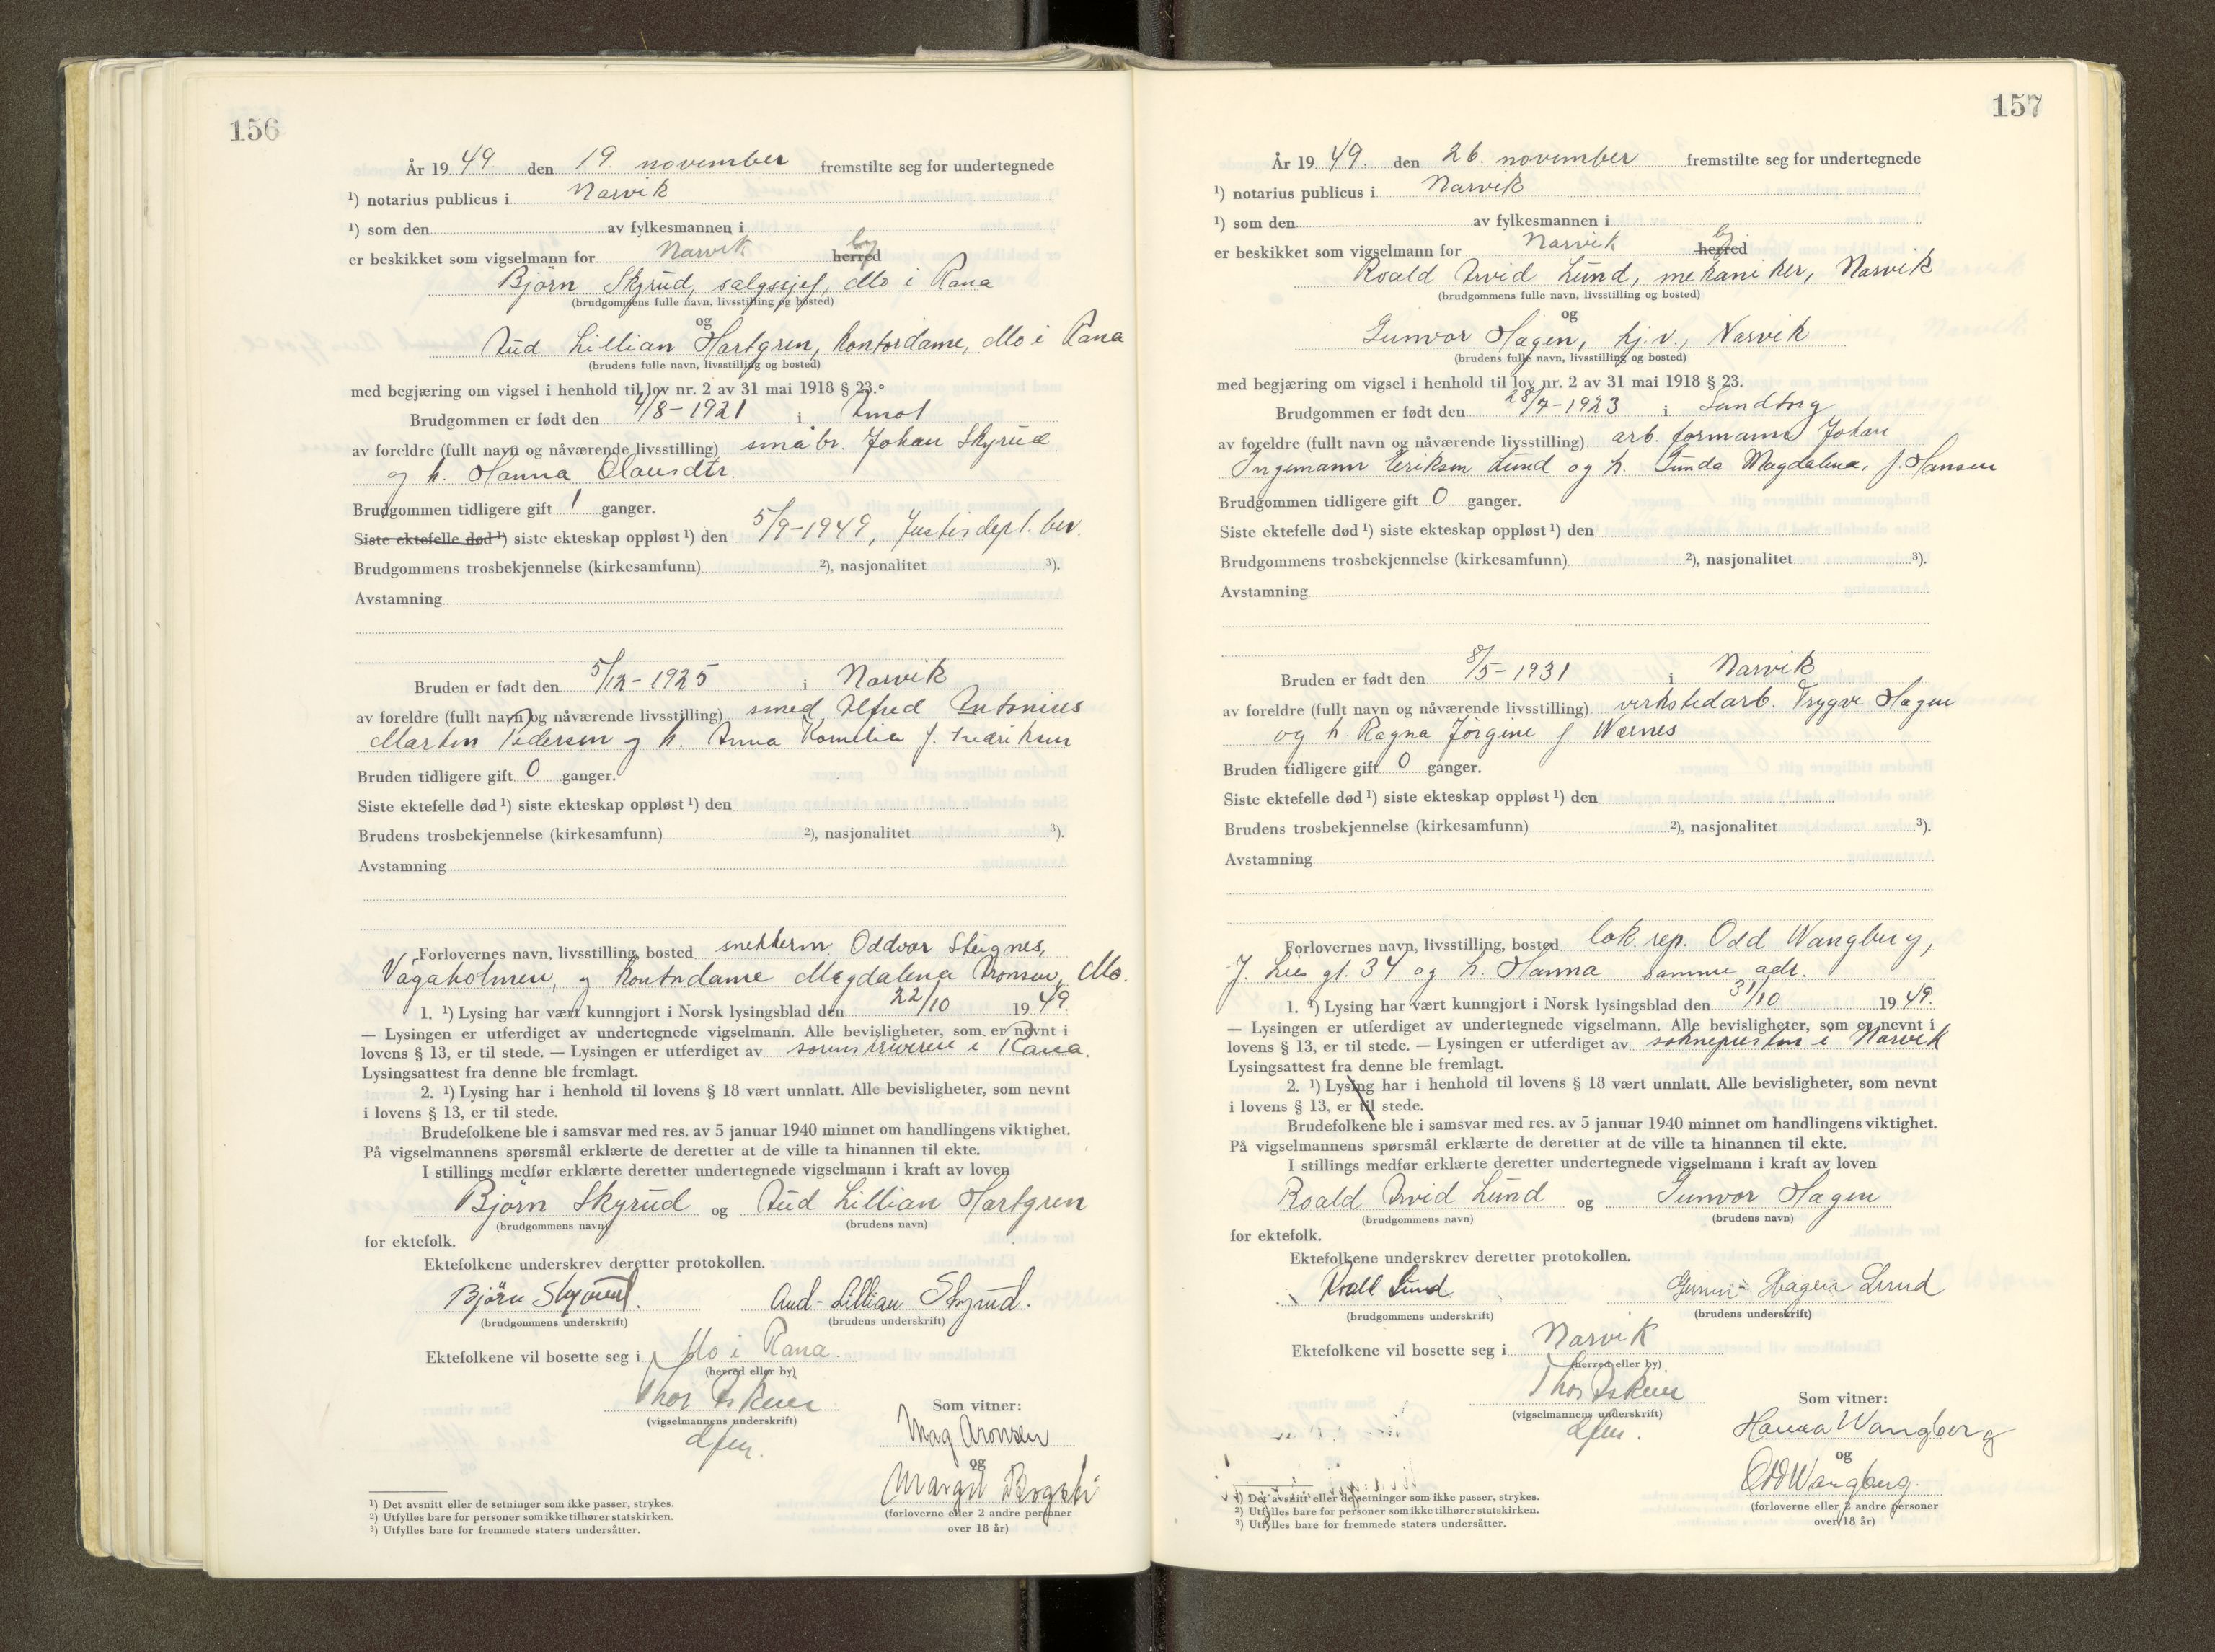 156
År 19 49. den 19. november fremstilte seg for undertegnede
¹) notarius publicus i Narvik
¹) som den av fylkesmannen i
er beskikket som vigselmann for Narvik herred by
Björn Skyrud, salgssjef, Mo i Rana
(brudgommens fulle navn, livsstilling og bosted)
og
Aud Lillian Hartgren, kontordame, Mo i Rana
(brudens fulle navn, livsstilling og bosted)
med begjæring om vigsel i henhold til lov nr. 2 av 31 mai 1918 § 23.
Brudgommen er født den 4/8-1921 i Åmot
av foreldre (fullt navn og nåværende livsstilling) småbr. Johan Skyrud
og h. Hanna Olausdtr.
Brudgommen tidligere gift 1 ganger.
Siste ektefelle død ¹) siste ekteskap oppløst ¹) den 5/9-1949, Justisdept. bev.
Brudgommens trosbekjennelse (kirkesamfunn) ²), nasjonalitet ³).
Avstamning
Bruden er født den 5/12-1925 i Narvik
av foreldre (fullt navn og nåværende livsstilling) smed Alfred Antonius
Martin Pedersen og h. Anna Kornelia f. Fredriksen
Bruden tidligere gift 0 ganger.
Siste ektefelle død ¹) siste ekteskap oppløst ¹) den
Brudens trosbekjennelse (kirkesamfunn) ²), nasjonalitet ³).
Avstamning
Forlovernes navn, livsstilling, bosted snekkerm. Oddvar Steignes,
Vågaholmen, og kontordame Magdalena Aronsen, Mo.
1. ¹) Lysing har vært kunngjort i Norsk lysingsblad den 22/10 19 49.
— Lysingen er utferdiget av undertegnede vigselmann. Alle bevisligheter, som er nevnt i
lovens § 13, er til stede. — Lysingen er utferdiget av sorenskriveren i Rana.
Lysingsattest fra denne ble fremlagt.
2. ¹) Lysing har i henhold til lovens § 18 vært unnlatt. Alle bevisligheter, som nevnt
i lovens § 13, er til stede.
Brudefolkene ble i samsvar med res. av 5 januar 1940 minnet om handlingens viktighet.
På vigselmannens spørsmål erklærte de deretter at de ville ta hinannen til ekte.
I stillings medfør erklærte deretter undertegnede vigselmann i kraft av loven
Björn Skyrud og Aud Lillian Hartgren
(brudgommens navn) (brudens navn)
for ektefolk.
Ektefolkene underskrev deretter protokollen.
Björn Skyrud. Aud-Lillian Skyrud.
(brudgommens underskrift) (brudens underskrift)
Ektefolkene vil bosette seg i Mo i Rana.
(herred eller by)
Thor
(vigselmannens underskrift)
dfm.
Som vitner:
Mag Aronsen
og
Margit
(forloverne eller 2 andre personer
over 18 år)
¹) Det avsnitt eller de setninger som ikke passer, strykes.
²) Utfylles bare for personer som ikke tilhører statskirken.
³) Utfylles bare for fremmede staters undersåtter.
157
År 19 49. den 26. november fremstilte seg for undertegnede
¹) notarius publicus i Narvik
¹) som den av fylkesmannen i
er beskikket som vigselmann for Narvik herred by
Roald Arvid Lund, mekaniker, Narvik
(brudgommens fulle navn, livsstilling og bosted)
og
Gunvor Hagen, hj.v., Narvik
(brudens fulle navn, livsstilling og bosted)
med begjæring om vigsel i henhold til lov nr. 2 av 31 mai 1918 § 23.
Brudgommen er født den 28/7-1923 i
av foreldre (fullt navn og nåværende livsstilling) arb. formann Johan
Ingemann Eriksen Lund og h. Gunda Magdalena, f. Hansen
Brudgommen tidligere gift 0 ganger.
Siste ektefelle død ¹) siste ekteskap oppløst ¹) den
Brudgommens trosbekjennelse (kirkesamfunn) ²), nasjonalitet ³).
Avstamning
Bruden er født den 8/5-1931 i Narvik
av foreldre (fullt navn og nåværende livsstilling) verkstedarb. Trygve Hagen
og h. Ragna Jörgine f. Wærnes
Bruden tidligere gift 0 ganger.
Siste ektefelle død ¹) siste ekteskap oppløst ¹) den
Brudens trosbekjennelse (kirkesamfunn) ²), nasjonalitet ³).
Avstamning
Forlovernes navn, livsstilling, bosted lok. rep. Odd Wangberg,
J. Lies gt. 34 og h. Hanna samme adr.
1. ¹) Lysing har vært kunngjort i Norsk lysingsblad den 31/10 19 49.
— Lysingen er utferdiget av undertegnede vigselmann. Alle bevisligheter, som er nevnt i
lovens § 13, er til stede. — Lysingen er utferdiget av soknepresten i Narvik
Lysingsattest fra denne ble fremlagt.
2. ¹) Lysing har i henhold til lovens § 18 vært unnlatt. Alle bevisligheter, som nevnt
i lovens § 13, er til stede.
Brudefolkene ble i samsvar med res. av 5 januar 1940 minnet om handlingens viktighet.
På vigselmannens spørsmål erklærte de deretter at de ville ta hinannen til ekte.
I stillings medfør erklærte deretter undertegnede vigselmann i kraft av loven
Roald Arvid Lund og Gunvor Hagen
(brudgommens navn) (brudens navn)
for ektefolk.
Ektefolkene underskrev deretter protokollen.
Roald Lund Gunvor Hagen Lund
(brudgommens underskrift) (brudens underskrift)
Ektefolkene vil bosette seg i Narvik
(herred eller by)
Thor
(vigselmannens underskrift)
dfm.
Som vitner:
Hanna Wangberg
og
Odd Wangberg.
(forloverne eller 2 andre personer
over 18 år)
¹) Det avsnitt eller de setninger som ikke passer, strykes.
²) Utfylles bare for personer som ikke tilhører statskirken.
³) Utfylles bare for fremmede staters undersåtter.